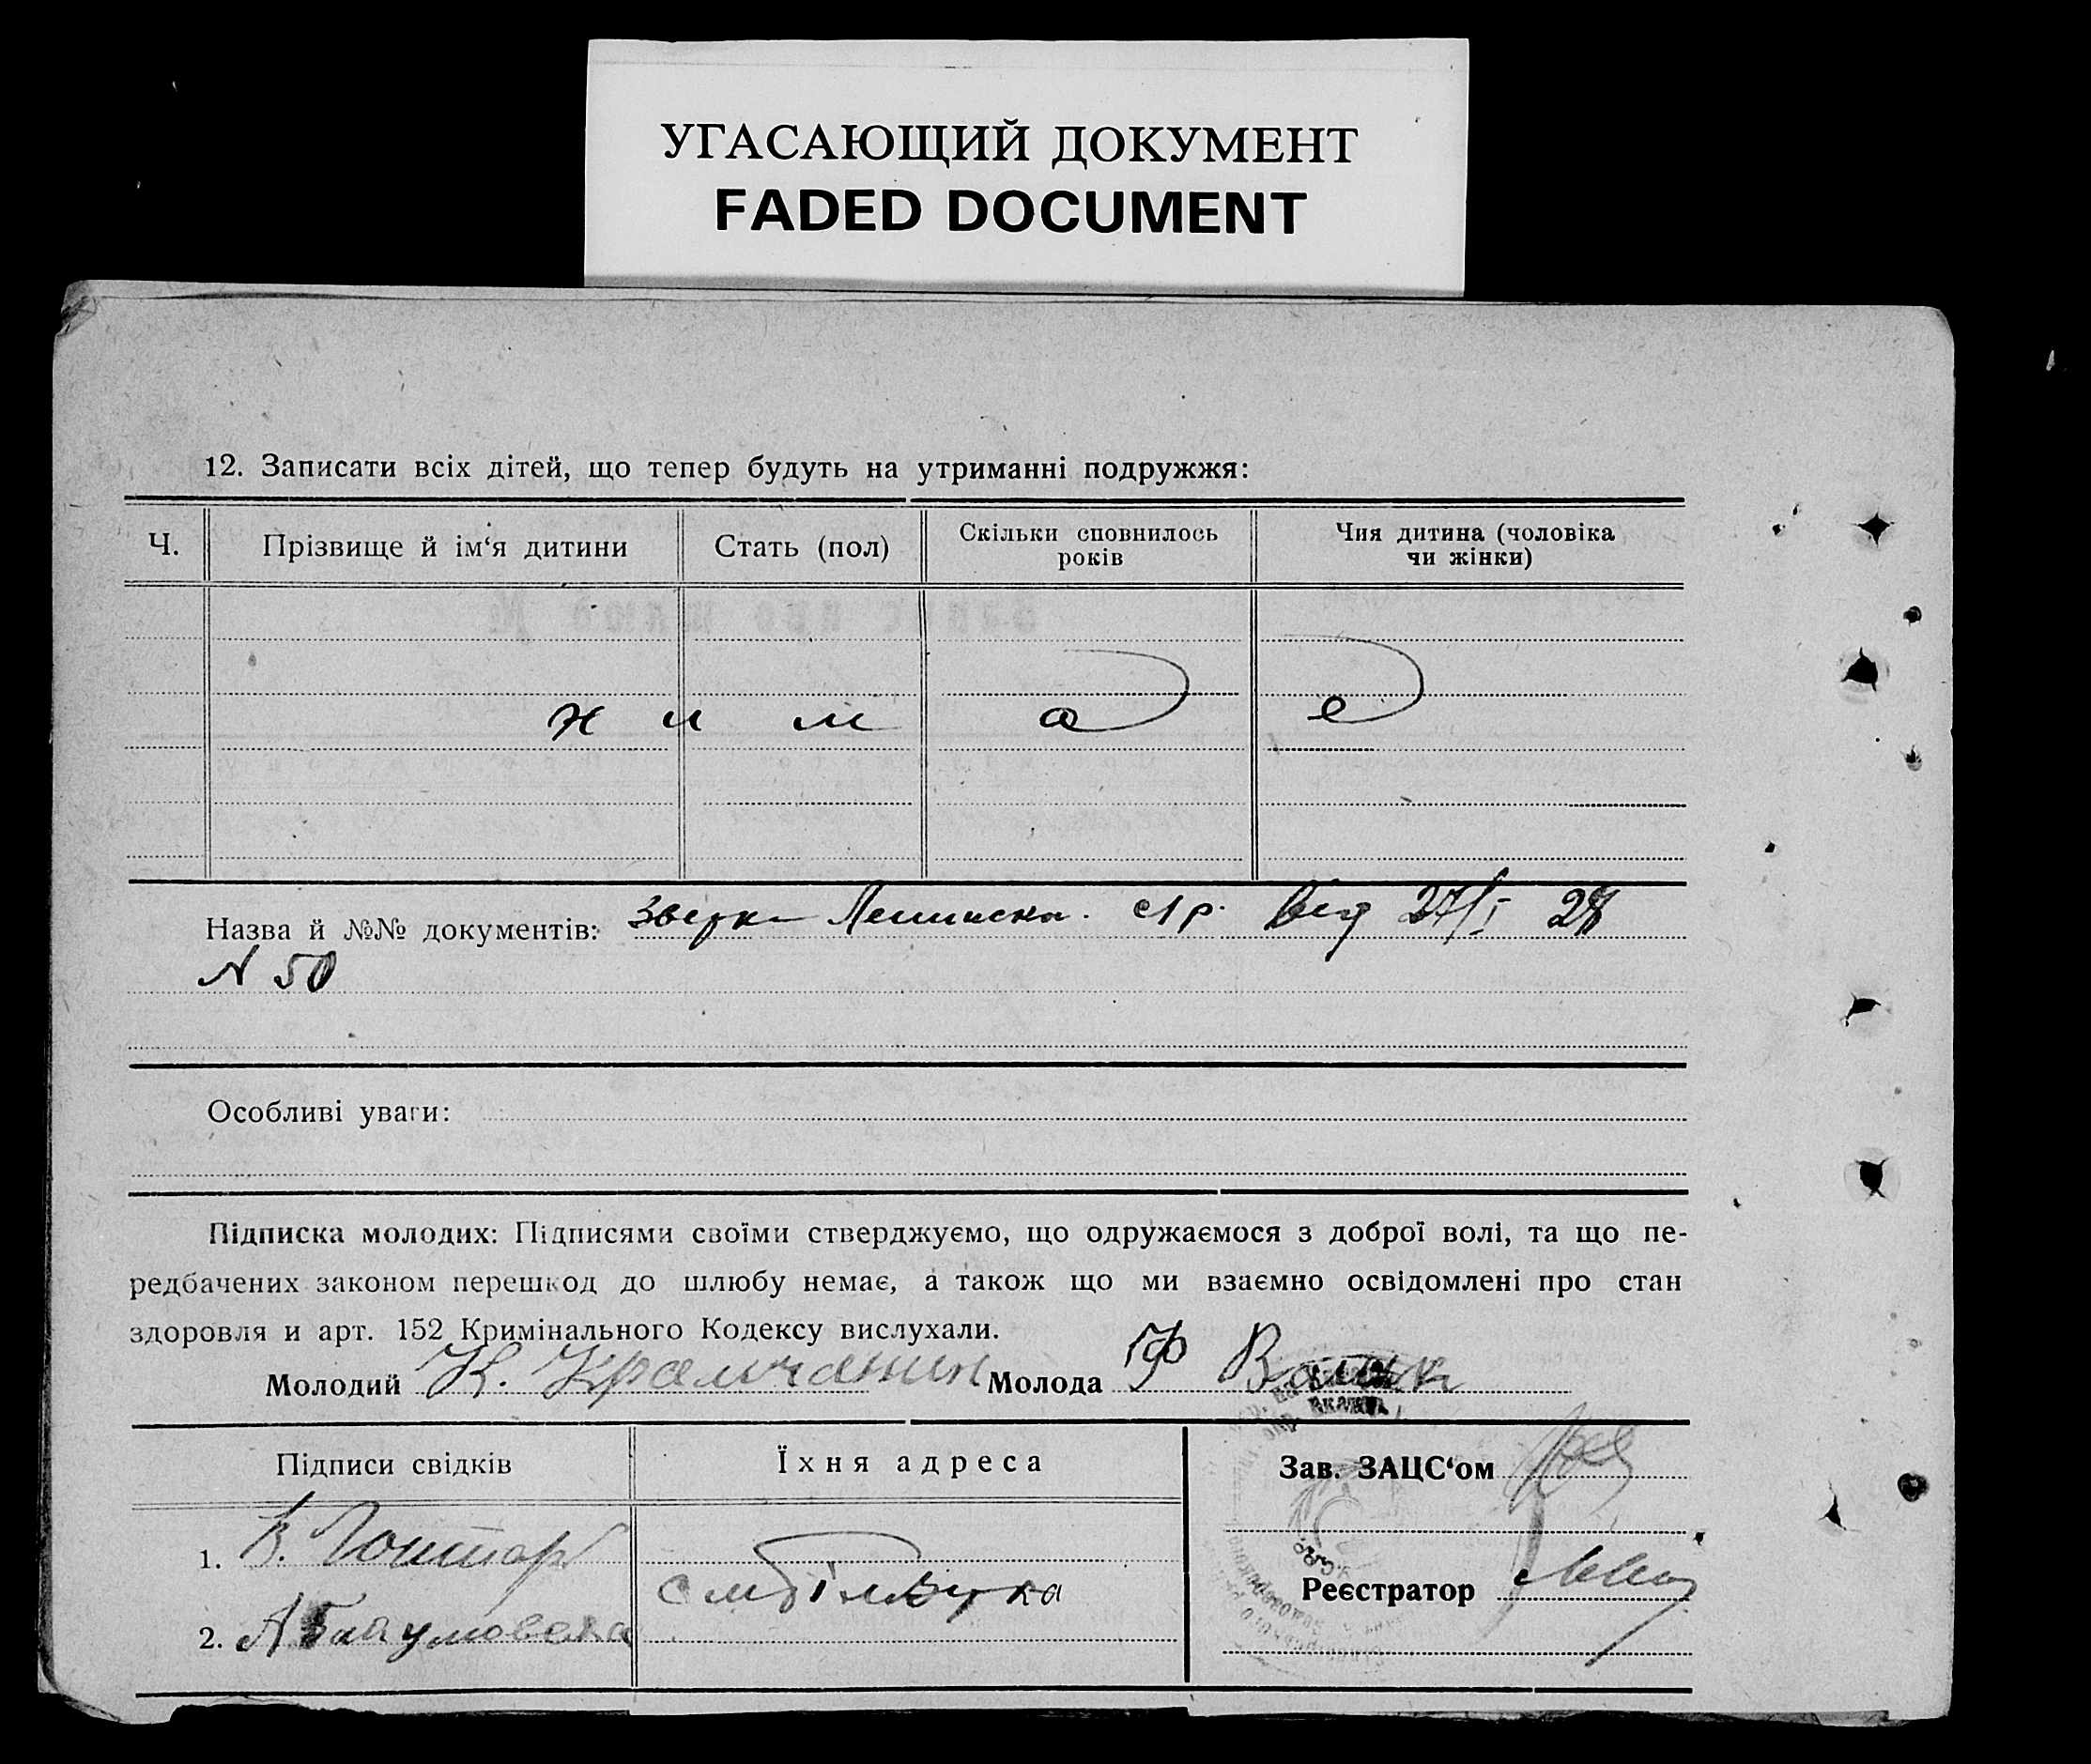 УГАСАЮЩИЙ ДОКУМЕНТ
FADED DOCUMENT
12. Записати всіх дітей, що тепер будуть на утриманні подружжя:
Ч. Прізвище й ім‘я дитини Стать (пол) Скільки сповнилось років Чия дитина (чоловіка чи жінки)
Назва й №№ документів: від 27/I 28
N 50
Особливі уваги:
Підписка молодих: Підписями своїми стверджуємо, що одружаємося з доброї волі, та що пе-
редбачених законом перешкод до шлюбу немає, а також що ми взаємно освідомлені про стан
здоровля и арт. 152 Кримінального Кодексу вислухали.
Молодий К. Крамчанин Молода
Підписи свідків Їхня адреса Зав. ЗАЦС‘ом
1.
Реєстратор
2.